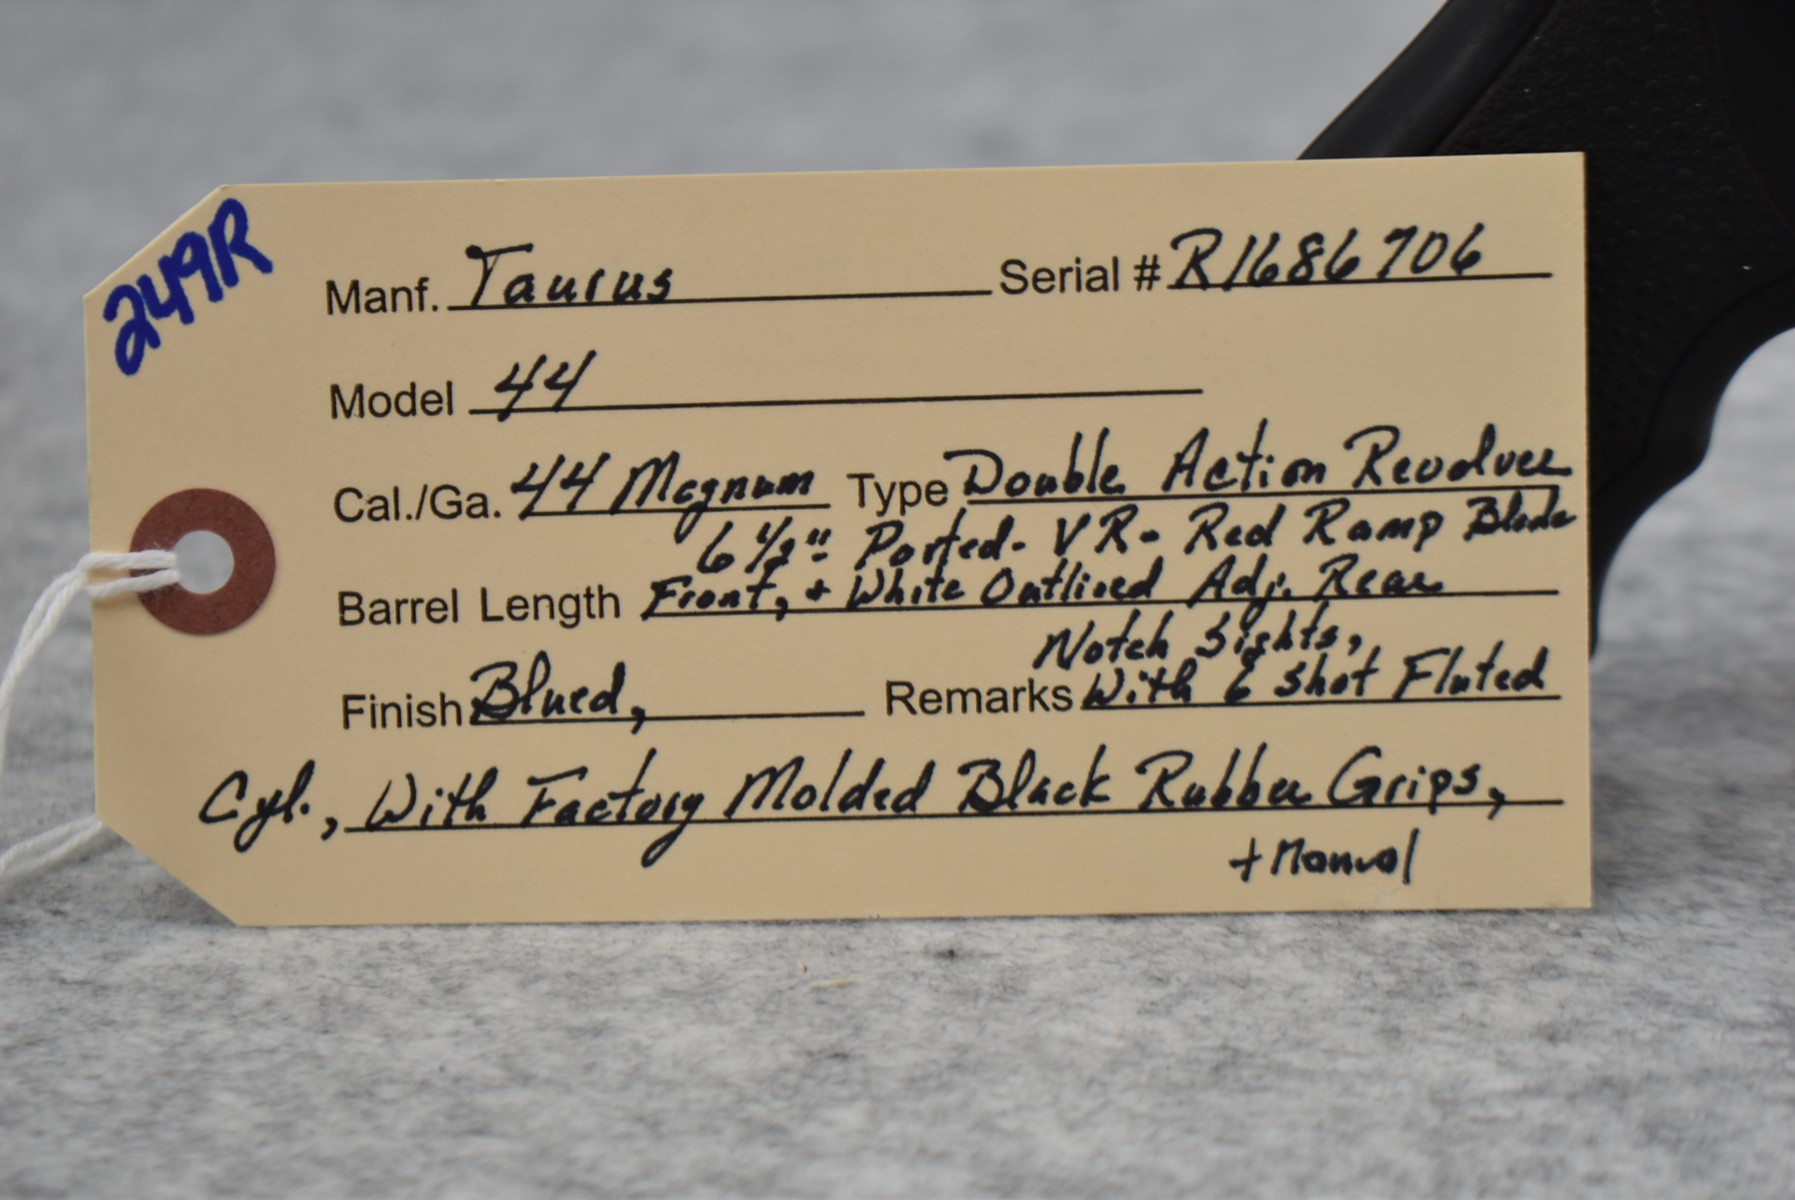 249R
Manf. Taurus Serial # R1686706
Model 44
Cal./Ga. 44 Magnum Type Double Action Revolver
6 1/2" Ported - VR - Red Ramp Blade
Barrel Length Front, + White Outlined Adj. Rear
Notch Sights,
Finish Blued, Remarks With 6 Shot Fluted
Cyl., With Factory Molded Black Rubber Grips,
+ Manual